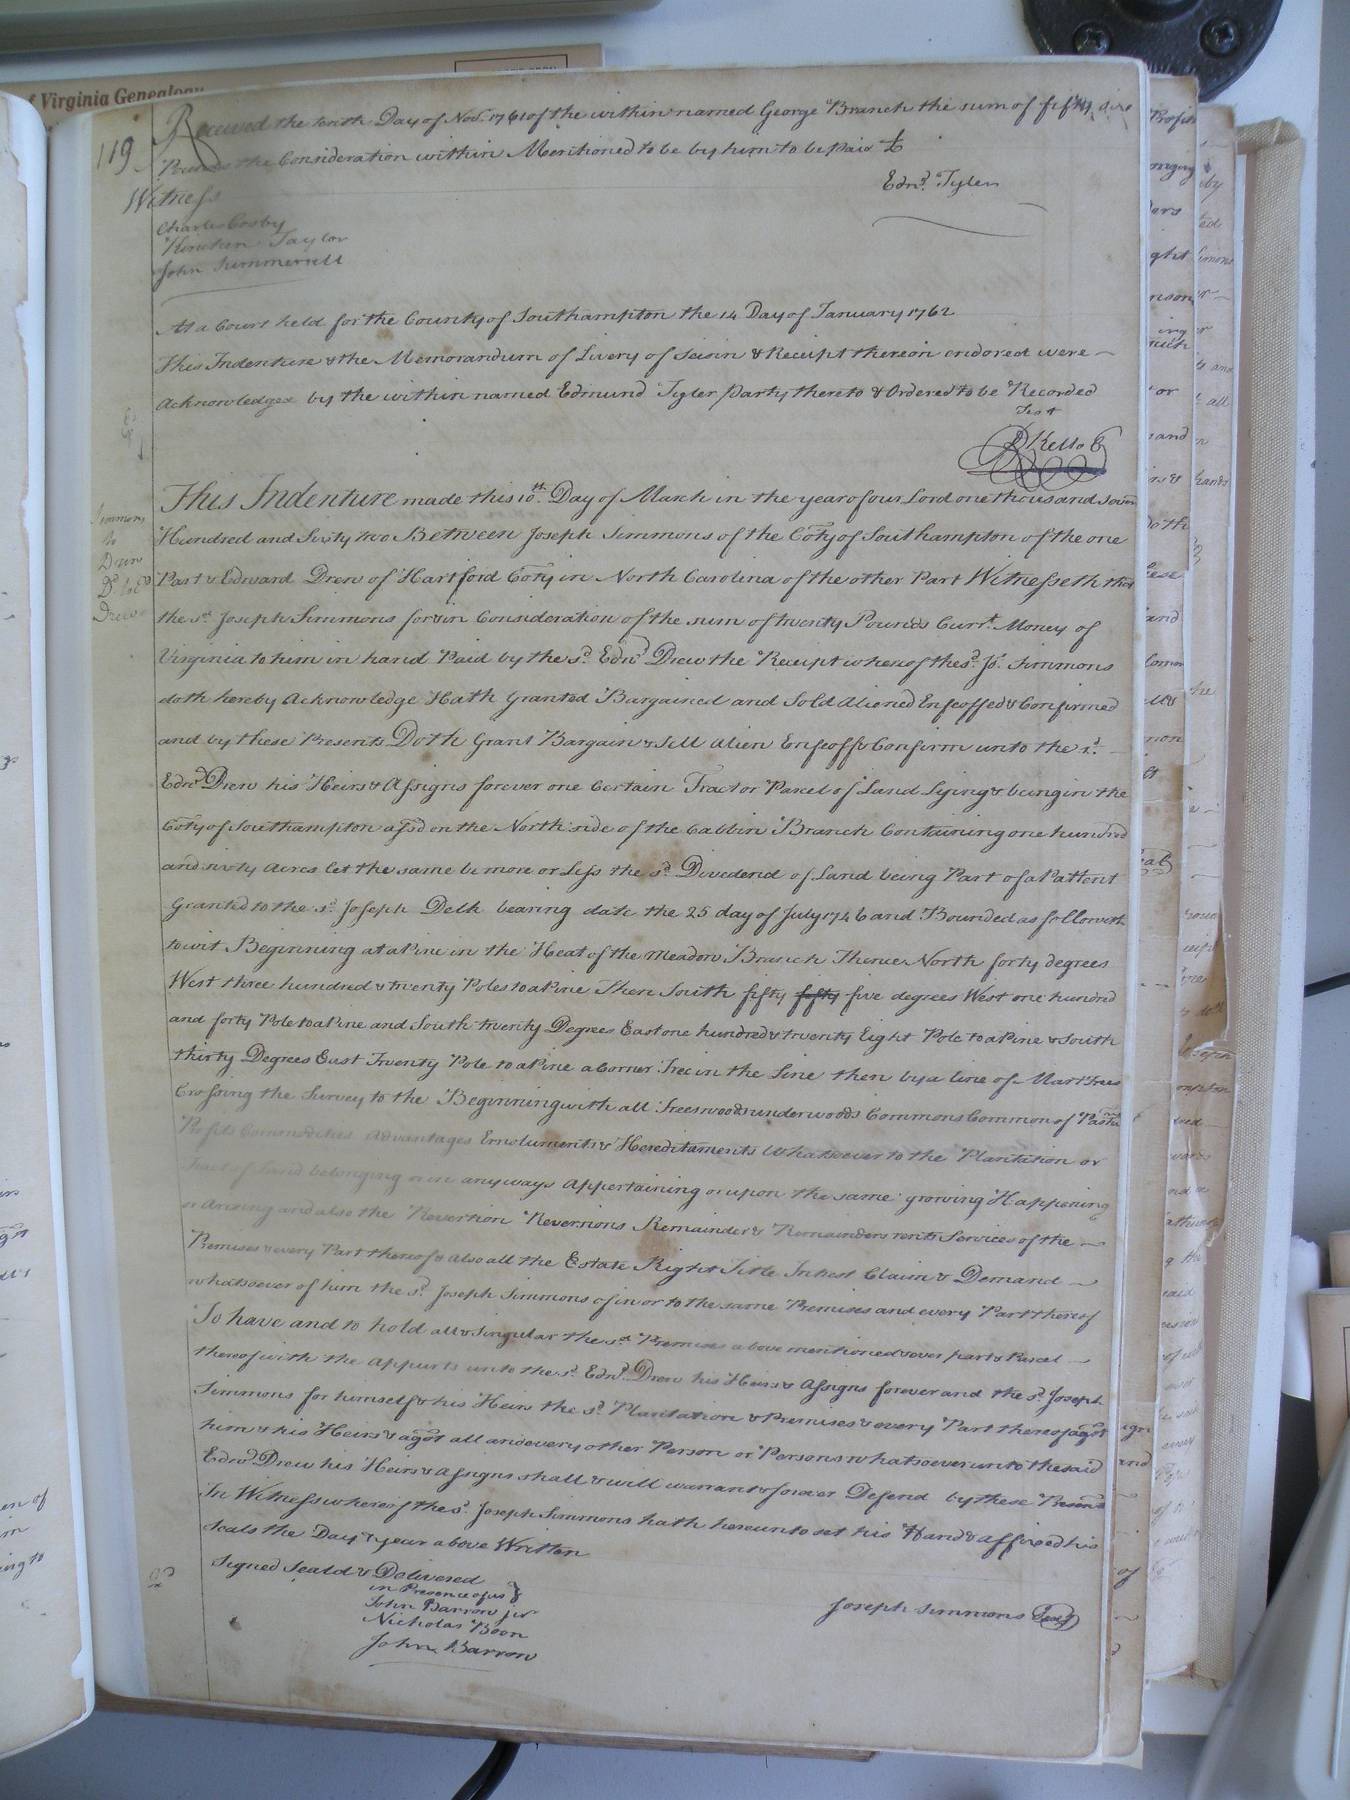 of Virginia Genealogy
119
Received the tenth Day of Nov.r 1761 of the within named George Branch the sum of fifty five
Pounds the Consideration within Mentioned to be by him to be paid
Edm.d Tyler
Witness
Charles Cosby
Kinchen Taylor
John Summerrell
At a Court held for the County of Southampton the 14 Day of January 1762
This Indenture & the Memorandum of Livery of Seisin & Receipt thereon endored were
Acknowledged by the within named Edmund Tyler party thereto & Ordered to be Recorded
Test
R Kello C
Simmons
to
Drew
Drew
This Indenture made this 10th Day of March in the year of our Lord one thousand seven
Hundred and Sixty two Between Joseph Simmons of the Coty of Southampton of the one
Part & Edward Drew of Hartford Coty in North Carolina of the other Part Witnesseth that
the sd Joseph Simmons for & in Consideration of the sum of twenty Pounds Curr.t Money of
Virginia to him in hand Paid by the sd Edwd Drew the Receipt whereof the sd Js. Simmons
doth hereby Acknowledge Hath Granted Bargained and Sold Aliened Enfeoffed & Confirmed
and by these Presents Doth Grant Bargain & Sell Alien Enfeoff & Confirm unto the sd
Edwd Drew his Heirs & Assigns forever one Certain Tract or Parcel of Land Lying & being in the
Coty of Southampton afsd on the North side of the Cabbin Branch Containing one hundred
and sixty Acres let the same be more or Less the sd Divedend of Land being Part of a Pattent
Granted to the sd Joseph Delk bearing date the 25 day of July 1746 and Bounded as followeth
to wit Beginning at a Pine in the Heat of the Meadow Branch Thence North forty degrees
West three hundred & twenty Poles to a Pine Then South fifty fifty five degrees West one hundred
and forty Pole to a Pine and South twenty Degrees East one hundred & twenty Eight Pole to a Pine & South
thirty Degrees East Twenty Pole to a Pine a Corner Tree in the Line then by a line of Mart Trees
Crossing the Survey to the Beginning with all Trees woods underwoods Commons Common of Pastu
Profits Comodities Advantages Emoluments & Hereditaments Whatsoever to the Plantation or
Tract of Land belonging or in anyways Appertaining or upon the same growing Happening
or Arising and also the Revertion Reversions Remainder & Remainders rents Services of the
Premises & every Part thereof & also all the Estate Right Title Intrest Claim & Demand
whatsoever of him the sd Joseph Simmons of in or to the same Premises and every Part thereof
To have and to hold all & Singular the sd Premises above mentioned & ever part & Parcel
thereof with the Appurts unto the sd Edwd Drew his Heirs & Assigns forever and the sd Joseph
Simmons for himself & his Heirs the sd Plantation & Premises & every Part thereof agst
him & his Heirs & agst all and every other Person or Persons whatsoever unto the said
Edwd Drew his Heirs & Assigns shall & will warrant & forever Defend by these Presents
In Witness whereof the sd Joseph Simmons hath hereunto set his Hand & affixed his
seals the Day & year above Written
Signed Seald & Delivered
in Presence of us
John Barrow jur
Nicholas Boon
John Barrow
Joseph Simmons Seal